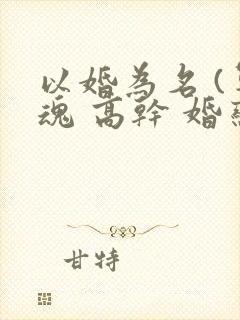 以婚為名(
魂 高幹 婚
甘特